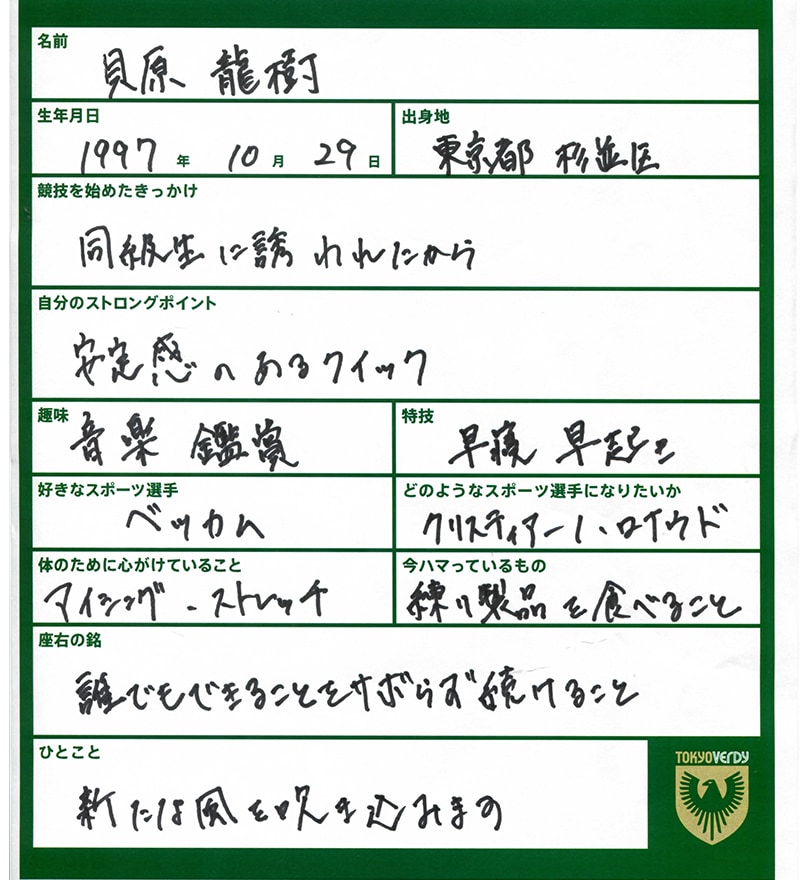 名前
貝原 龍樹
生年月日
出身地
1997 年 10 月 29 日
東京都 杉並区
競技を始めたきっかけ
同級生に誘われたから
自分のストロングポイント
安定感のあるクイック
趣味
特技
音楽 鑑賞
早寝 早起き
好きなスポーツ選手
どのようなスポーツ選手になりたいか
ベッカム
クリスティアーノ・ロナウド
体のために心がけていること
今ハマっているもの
アイシング・ストレッチ
練り製品を食べること
座右の銘
誰でもできることをサボらず続けること
ひとこと
新たな風を吹き込みます
TOKYO VERDY